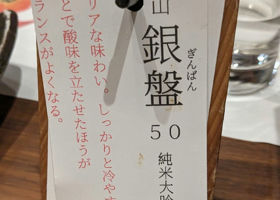 山 銀盤
ぎんばん
50
純米大吟
リアな味わい。しっかりと冷や
とで酸味を立たせたほうが
ランスがよくなる。